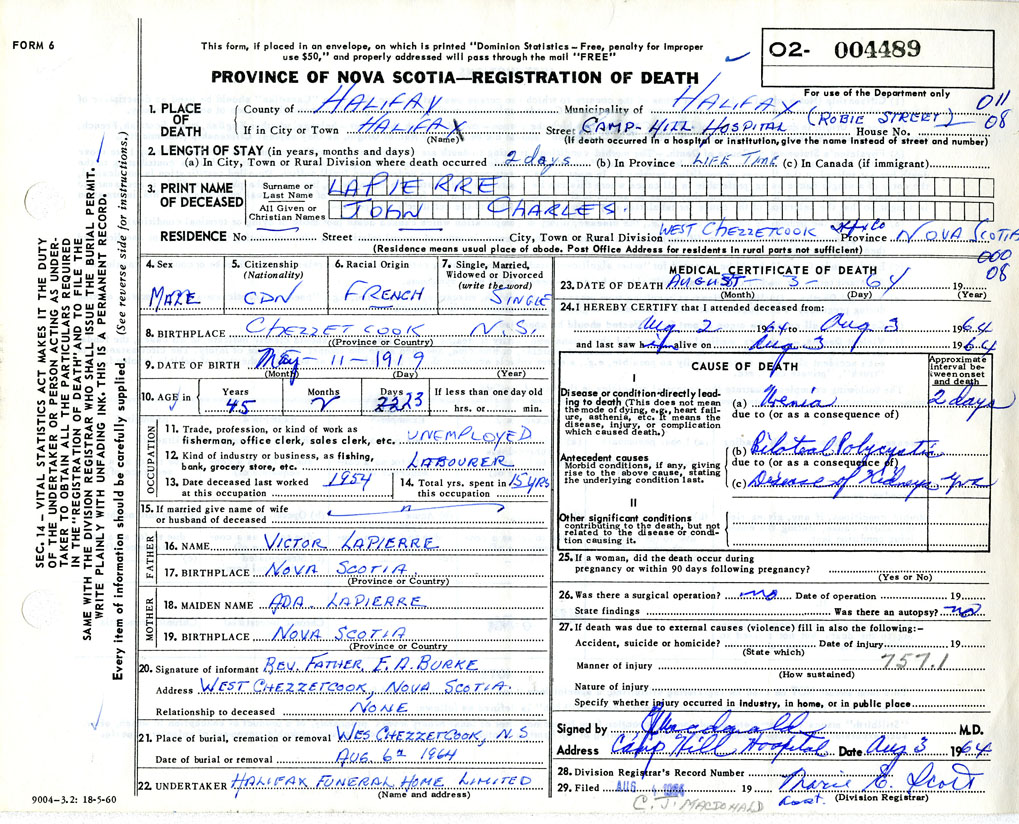 FORM 6
This form, if placed in an envelope, on which is printed "Dominion Statistics – Free, penalty for improper
use $50," and properly addressed will pass through the mail "FREE"
O2- 004489
For use of the Department only
PROVINCE OF NOVA SCOTIA—REGISTRATION OF DEATH
011
08
1. PLACE OF DEATH County of HALIFAX Municipality of HALIFAX (ROBIE STREET)
If in City or Town HALIFAX (Name) Street CAMP-HILL HOSPITAL House No.
(If death occurred in a hospital or institution, give the name instead of street and number)
2. LENGTH OF STAY (in years, months and days)
(a) In City, Town or Rural Division where death occurred 2 days (b) In Province LIFE TIME (c) In Canada (if immigrant)
3. PRINT NAME OF DECEASED Surname or Last Name LAPIERRE
All Given or Christian Names JOHN CHARLES.
RESIDENCE No Street City, Town or Rural Division WEST CHEZZETCOOK Hfx Co Province NOVA SCOTIA
(Residence means usual place of abode. Post Office Address for residents in rural parts not sufficient)
000
08
4. Sex MALE
5. Citizenship (Nationality) CDN
6. Racial Origin FRENCH
7. Single, Married, Widowed or Divorced (write the word) SINGLE
8. BIRTHPLACE CHEZZETCOOK N.S.
(Province or Country)
9. DATE OF BIRTH May - 11 - 1919
(Month) (Day) (Year)
10. AGE in Years 45 Months 2 Days 22 23 If less than one day old hrs. or min.
OCCUPATION
11. Trade, profession, or kind of work as fisherman, office clerk, sales clerk, etc. UNEMPLOYED
12. Kind of industry or business, as fishing, bank, grocery store, etc. LABOURER
13. Date deceased last worked at this occupation 1954
14. Total yrs. spent in this occupation 15 YRS
15. If married give name of wife or husband of deceased
FATHER
16. NAME VICTOR LAPIERRE
17. BIRTHPLACE NOVA SCOTIA
(Province or Country)
MOTHER
18. MAIDEN NAME ADA LAPIERRE
19. BIRTHPLACE NOVA SCOTIA
(Province or Country
20. Signature of informant REV. FATHER E.A. BURKE
Address WEST CHEZZETCOOK, NOVA SCOTIA.
Relationship to deceased NONE
21. Place of burial, cremation or removal WES CHEZZETCOOK, N.S
Date of burial or removal AUG. 6th 1964
22. UNDERTAKER HALIFAX FUNERAL HOME LIMITED
(Name and address)
9004–3.2: 18-5-60
MEDICAL CERTIFICATE OF DEATH
23. DATE OF DEATH AUGUST - 3 - 64 19
(Month) (Day) (Year)
24. I HEREBY CERTIFY that I attended deceased from:
Aug 2 1964 to Aug 3 1964
and last saw h alive on Aug 3 1964
CAUSE OF DEATH
Approximate interval between onset and death
I
Disease or condition directly leading to death (This does not mean the mode of dying, e.g., heart failure, asthenia, etc. It means the disease, injury, or complication which caused death.)
(a) Uremia 2 days
due to (or as a consequence of)
Antecedent causes
Morbid conditions, if any, giving rise to the above cause, stating the underlying condition last.
(b) Bilateral Polycystic
due to (or as a consequence of)
(c) Disease of Kidneys yrs
II
Other significant conditions contributing to the death, but not related to the disease or condition causing it.
25. If a woman, did the death occur during pregnancy or within 90 days following pregnancy?
(Yes or No)
26. Was there a surgical operation? no Date of operation 19
State findings Was there an autopsy? no
27. If death was due to external causes (violence) fill in also the following:–
Accident, suicide or homicide? Date of injury 19
(State which)
757.1
Manner of injury
(How sustained)
Nature of injury
Specify whether injury occurred in industry, in home, or in public place
Signed by Macdonald M.D.
Address Camp Hill Hospital Date Aug 3 1964
28. Division Registrar's Record Number
29. Filed AUG 4 1964 19 Marie E. Scott
(Division Registrar)
C. J. MACDONALD
SEC. 14 – VITAL STATISTICS ACT MAKES IT THE DUTY
OF THE UNDERTAKER OR PERSON ACTING AS UNDER-
TAKER TO OBTAIN ALL THE PARTICULARS REQUIRED
IN THE "REGISTRATION OF DEATH" AND TO FILE THE
SAME WITH THE DIVISION REGISTRAR WHO SHALL ISSUE THE BURIAL PERMIT.
WRITE PLAINLY WITH UNFADING INK. THIS IS A PERMANENT RECORD.
Every item of information should be carefully supplied. (See reverse side for instructions.)